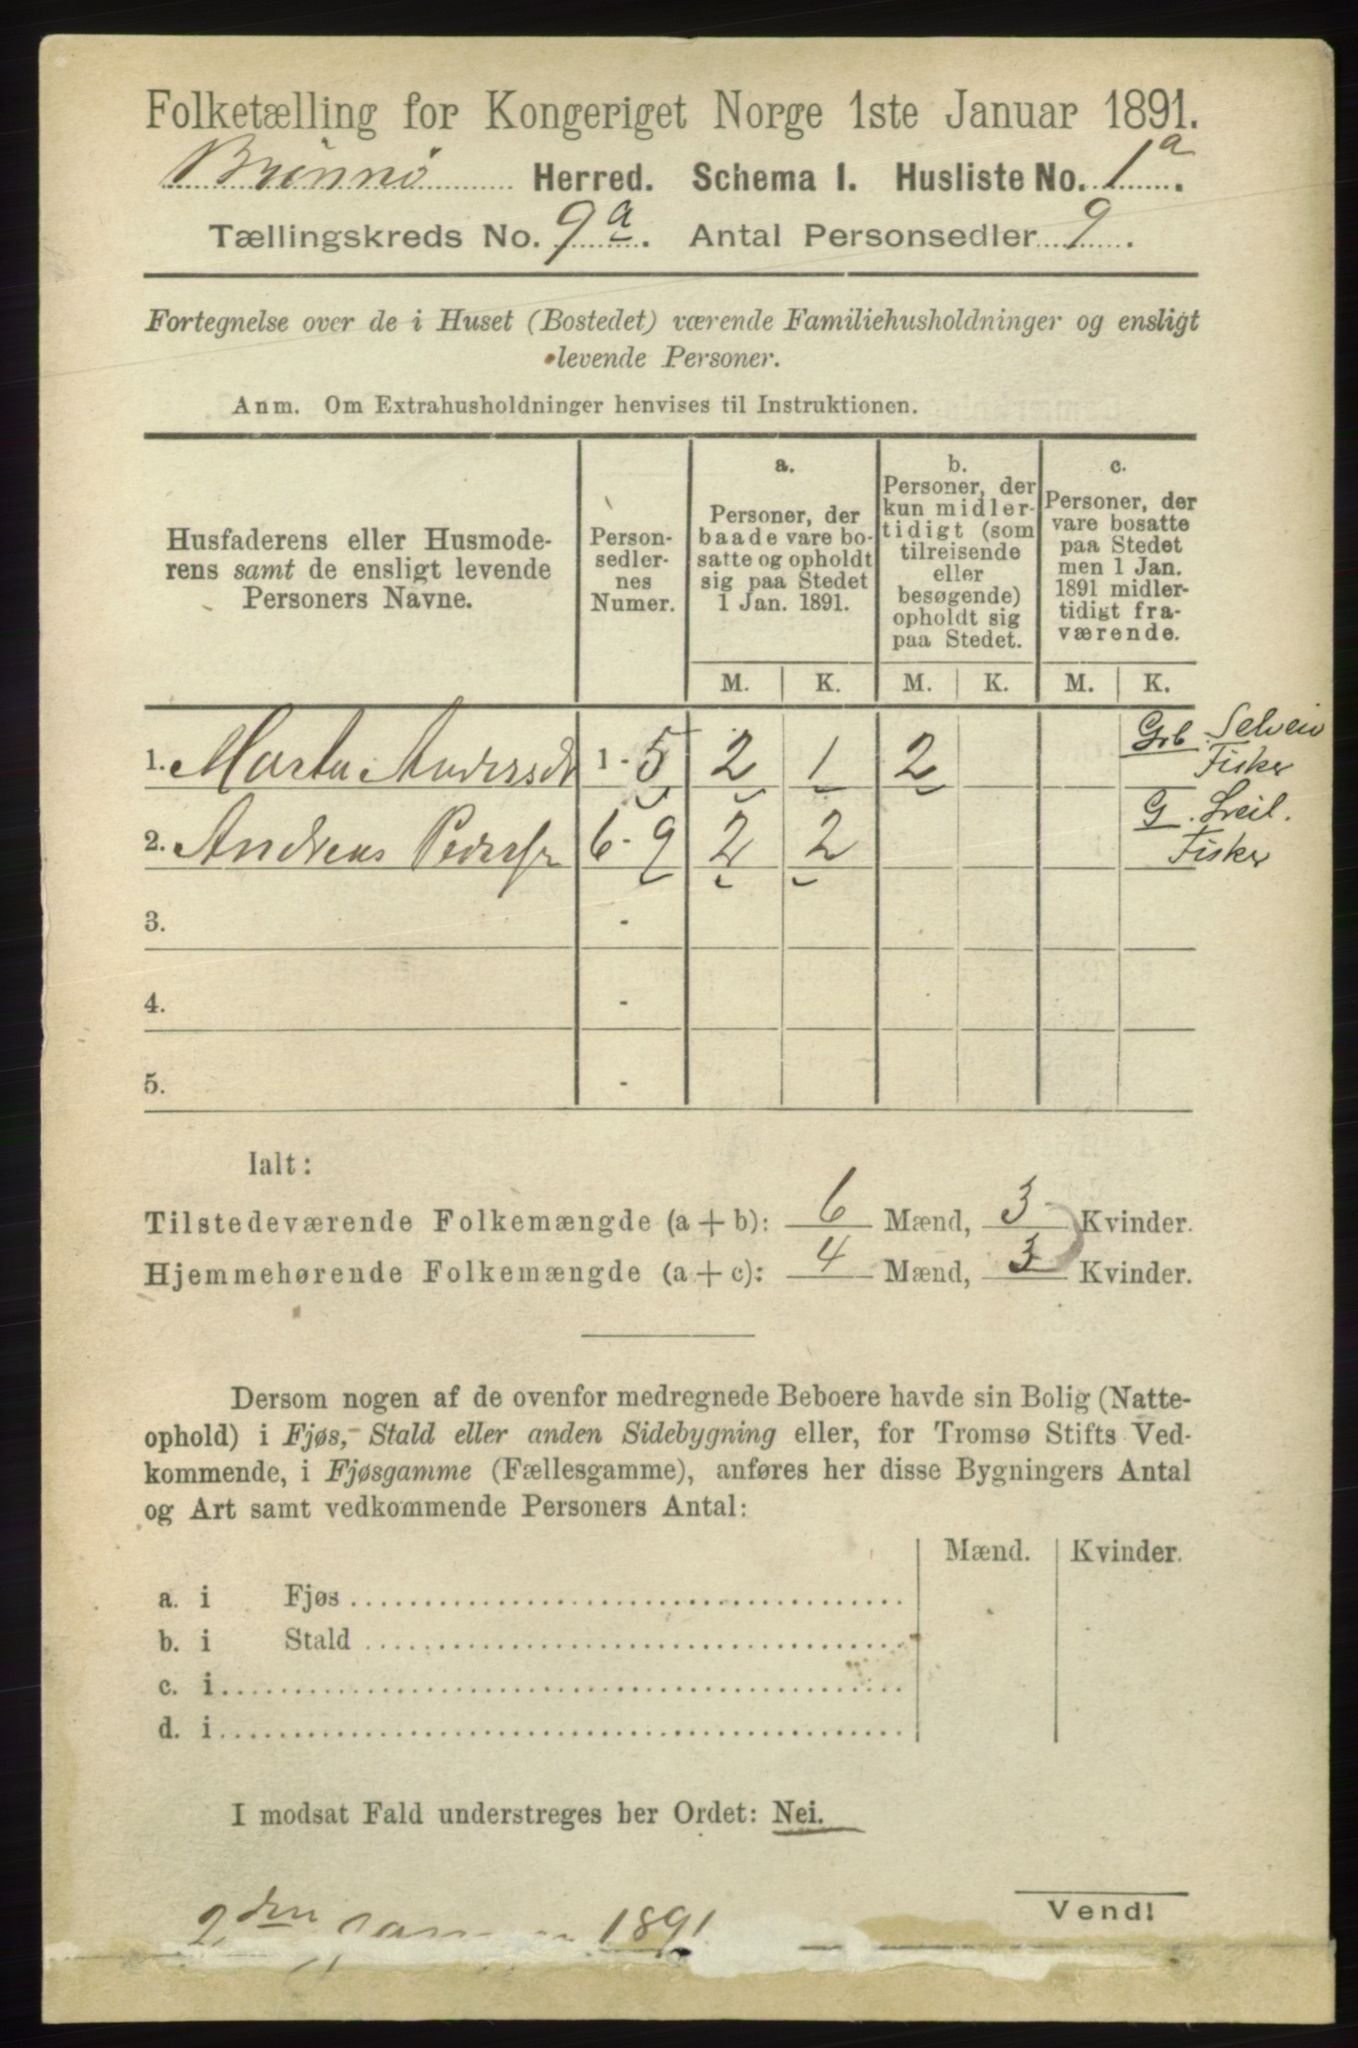 Folketælling for Kongeriget Norge 1ste Januar 1891.
Brønnø Herred. Schema I. Husliste No. 1a.
Tællingskreds No. 9a. Antal Personsedler 9.
Fortegnelse over de i Huset (Bostedet) værende Familiehusholdninger og ensligt
levende Personer.
Anm. Om Extrahusholdninger henvises til Instruktionen.
Husfaderens eller Husmode-
rens samt de ensligt levende
Personers Navne.
Person-
sedler-
nes
Numer.
a.
Personer, der
baade vare bo-
satte og opholdt
sig paa Stedet
1 Jan. 1891.
b.
Personer, der
kun midler-
tidigt (som
tilreisende
eller
besøgende)
opholdt sig
paa Stedet.
c.
Personer, der
vare bosatte
paa Stedet
men 1 Jan.
1891 midler-
tidigt fra-
værende.
M. K. M. K. M. K.
1. Marta Andersd 1 - 5 2 1 2 Grb. Selveio
Fisker
2. Andreas Peders 6 - 9 2 2 G. Leil.
Fisker
3. -
4. -
5. -
Ialt:
Tilstedeværende Folkemængde (a + b): 6 Mænd, 3 Kvinder.
Hjemmehørende Folkemængde (a + c): 4 Mænd, 3 Kvinder.
Dersom nogen af de ovenfor medregnede Beboere havde sin Bolig (Natte-
ophold) i Fjøs, Stald eller anden Sidebygning eller, for Tromsø Stifts Ved-
kommende, i Fjøsgamme (Fællesgamme), anføres her disse Bygningers Antal
og Art samt vedkommende Personers Antal:
Mænd. Kvinder.
a. i Fjøs
b. i Stald
c. i
d. i
I modsat Fald understreges her Ordet: Nei.
2den 1891
Vend!